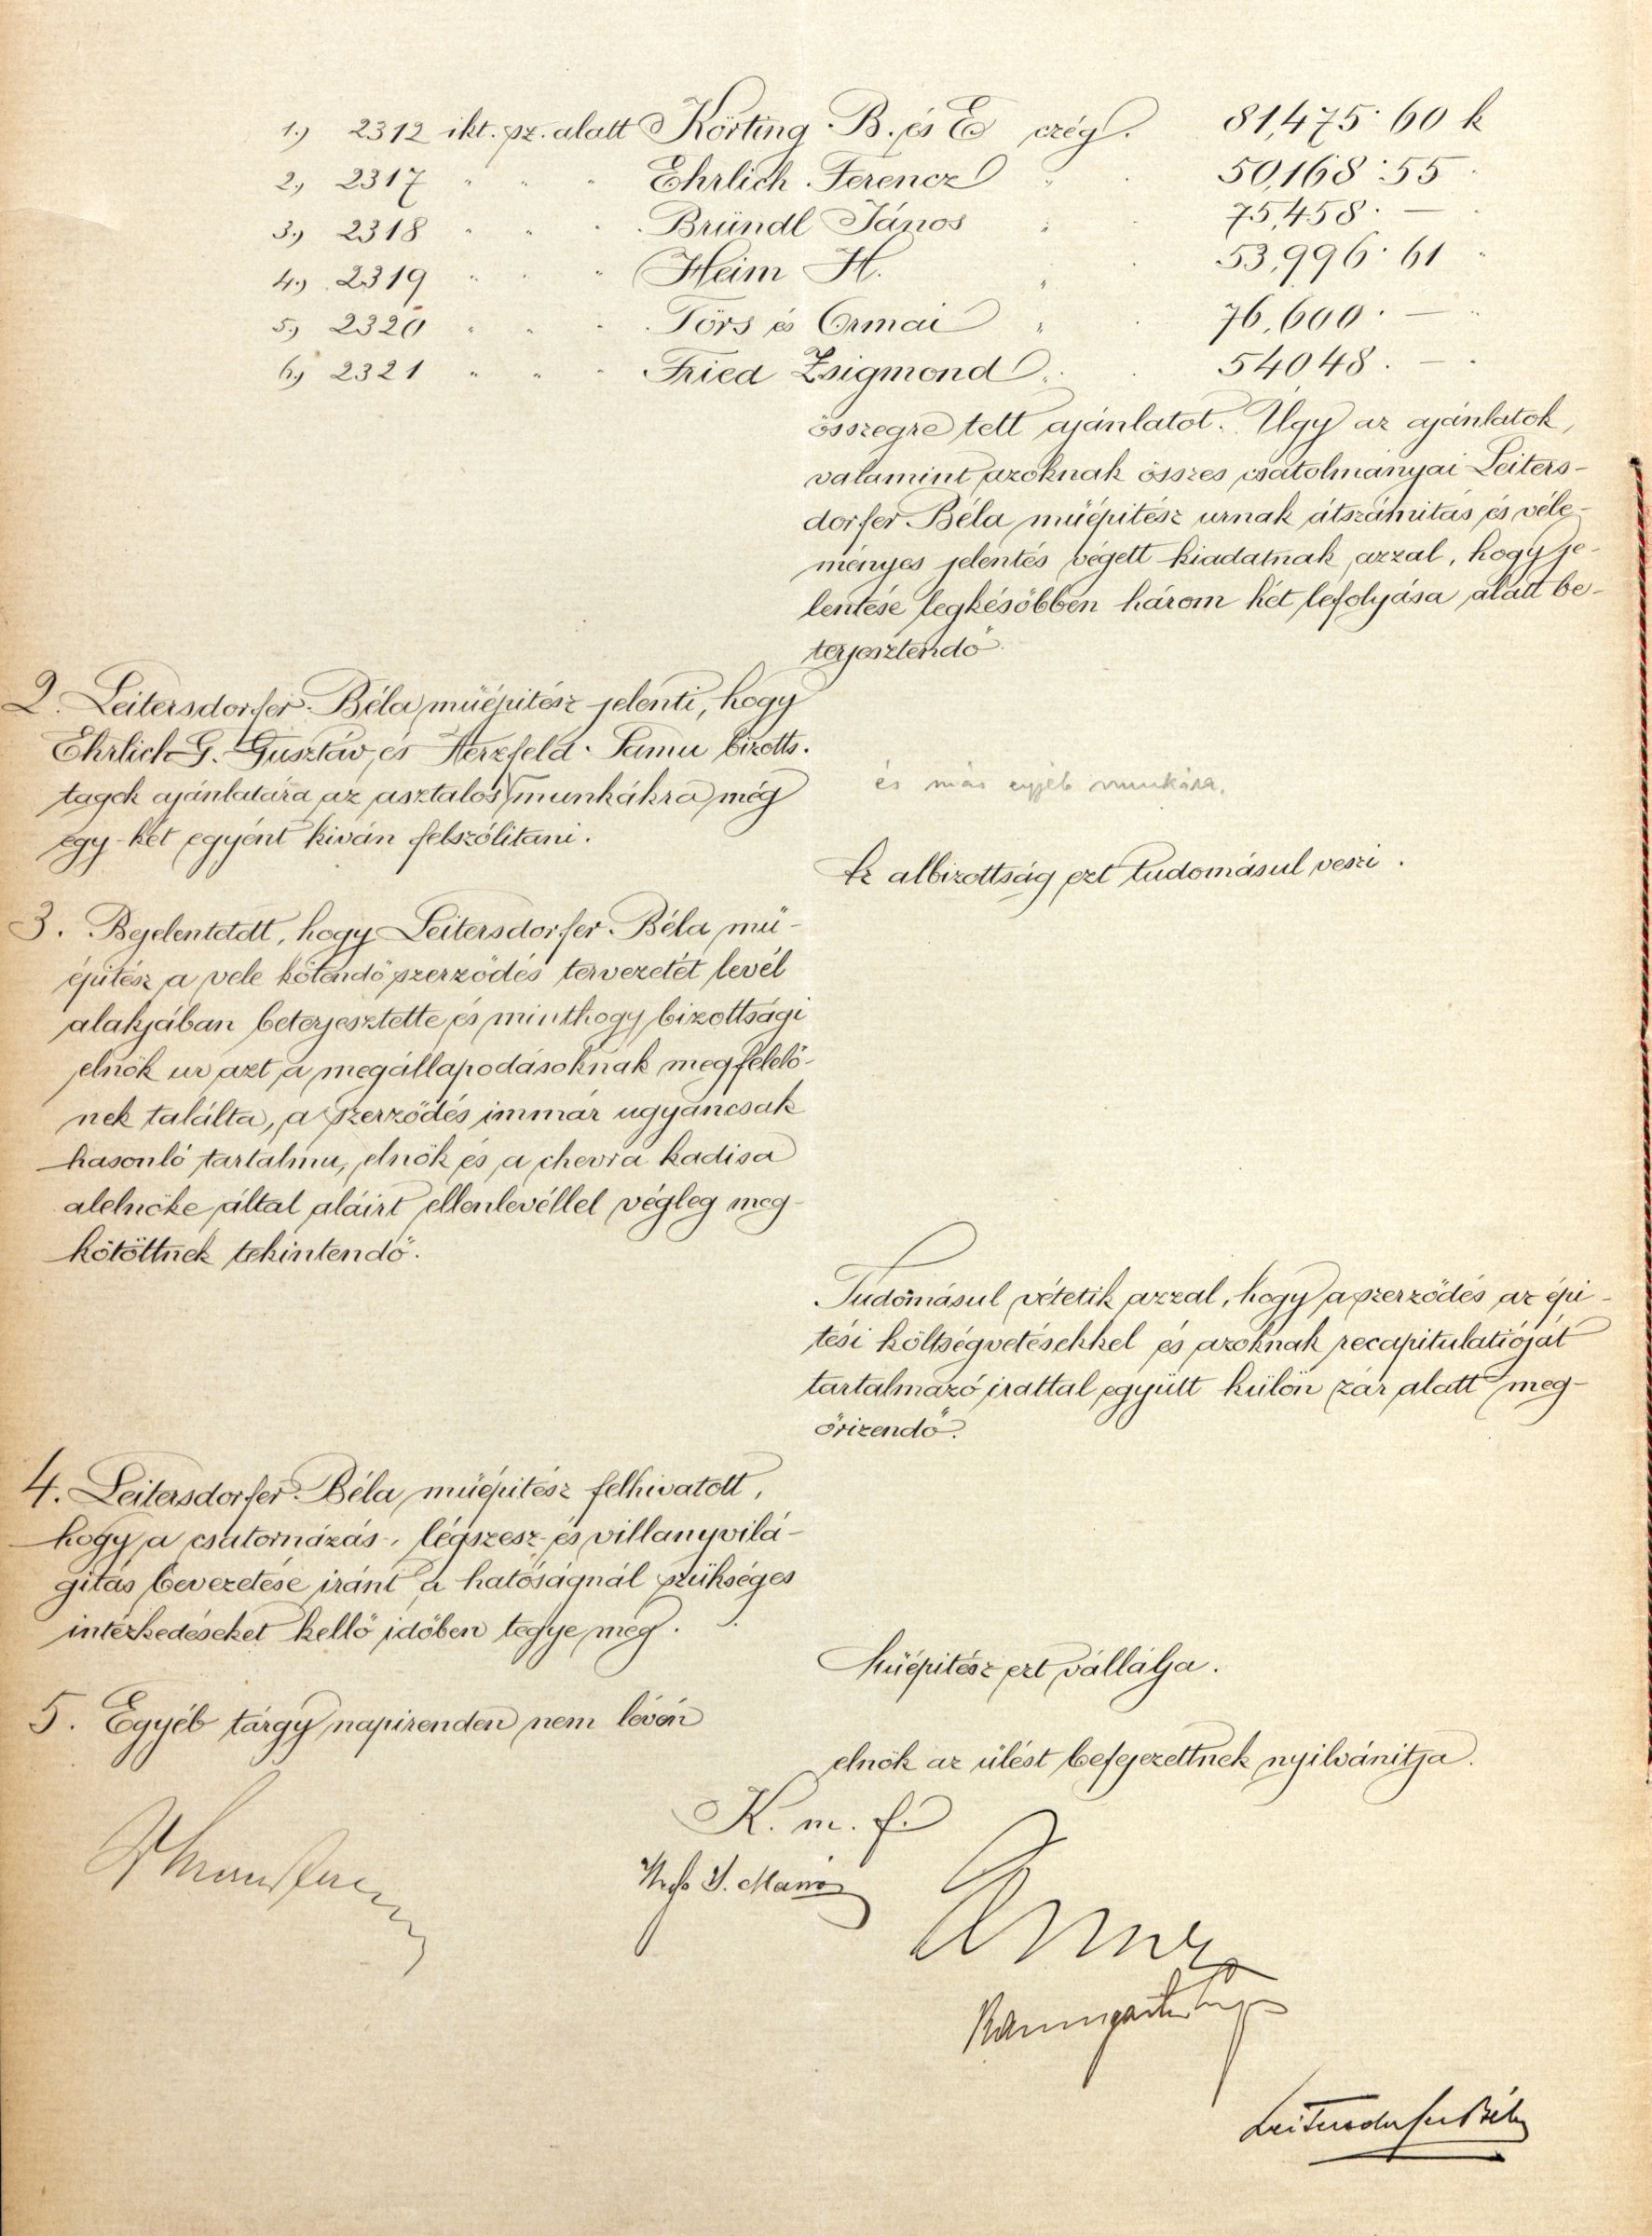 1.) 2312 ikt. sz. alatt Körting B. és E czég. 81,475·60 k
2.) 2317 " " " Ehrlich Ferencz " 50,168·55 "
3.) 2318 " " " Bründl János " 75,458· — "
4.) 2319 " " " Heim H. " 53,996·61 "
5.) 2320 " " " Törs és Ormai " 76,600· — "
6.) 2321 " " " Fried Zsigmond " 54048. — "
összegre tett ajánlatot. Úgy az ajánlatok,
valamint azoknak összes csatolmányai Leiters-
dorfer Béla műépitész urnak átszámitás és véle-
ményes jelentés végett kiadatnak azzal, hogy je-
lentése legkésőbben három hét lefolyása alatt be-
terjesztendő.
2. Leitersdorfer Béla műépitész jelenti, hogy
Ehrlich G. Gusztáv és Herzfeld Samu bizotts.
tagok ajánlatára az asztalos munkákra még
egy-két egyént kiván felszólitani.
és más egyéb munkára.
Az albizottság ezt tudomásul veszi.
3. Bejelentetett, hogy Leitersdorfer Béla mű-
épitész a vele kötendő szerződés tervezetét levél
alakjában beterjesztette és minthogy bizottsági
elnök ur azt a megállapodásoknak megfelelő-
nek találta, a szerződés immár ugyancsak
hasonló tartalmu, elnök és a chevra kadisa
alelnöke által aláirt ellenlevéllel végleg meg-
kötöttnek tekintendő.
Tudomásul vétetik azzal, hogy a szerződés az épi-
tési költségvetésekkel és azoknak recapitulatióját
tartalmazó irattal együtt külön zár alatt meg-
őrizendő.
4. Leitersdorfer Béla műépitész felhivatott,
hogy a csatornázás-, légszesz- és villanyvilá-
gitás bevezetése iránt a hatóságnál szükséges
intézkedéseket kellő időben tegye meg.
Műépitész ezt vállálja.
5. Egyéb tárgy napirenden nem lévén
elnök az ülést befejezettnek nyilvánitja.
K. m. f.
Baumgarten
Leitersdorfer Béla